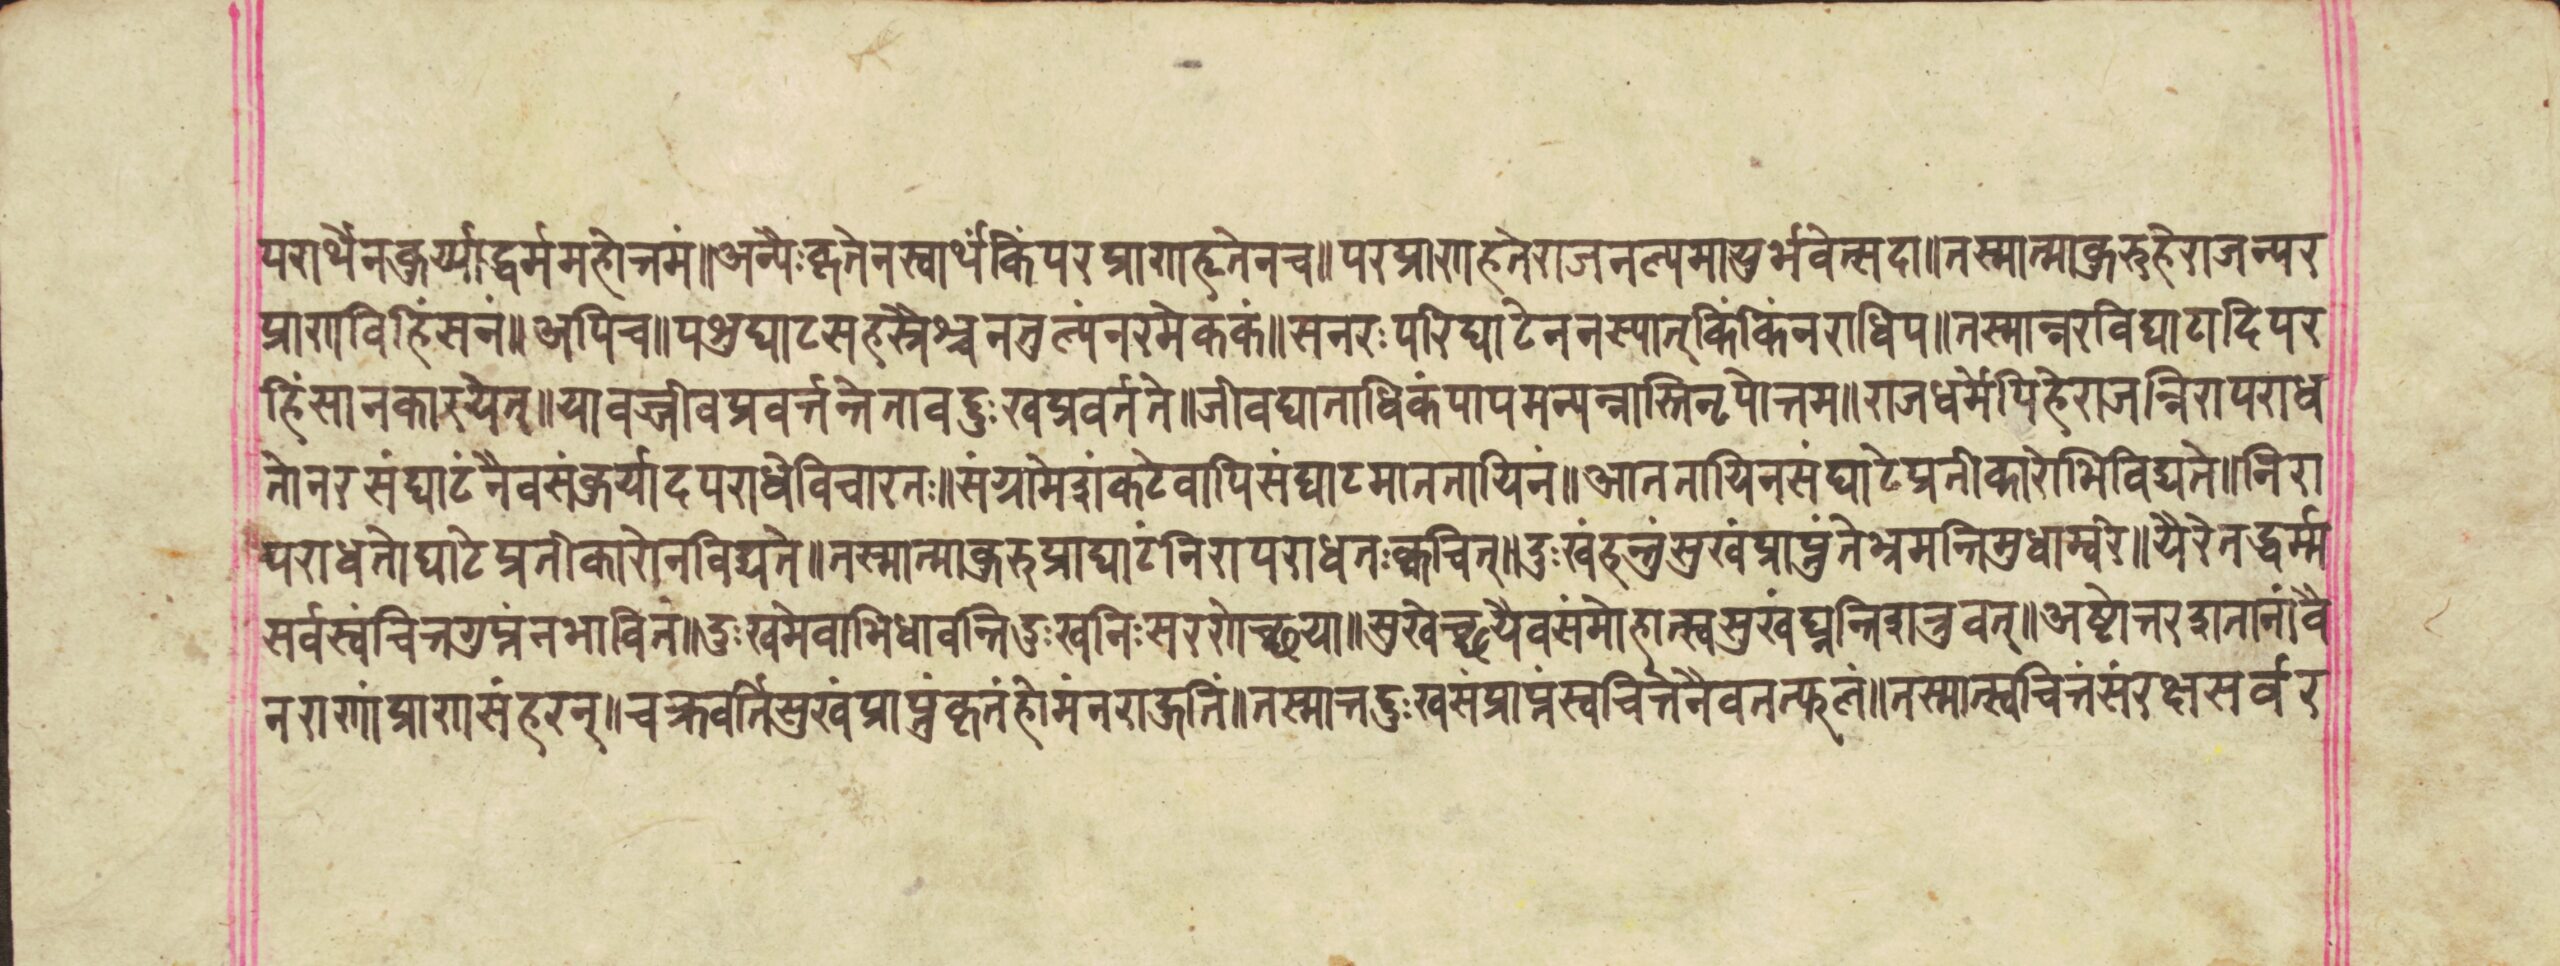 परार्थेनकुर्य्याद्धर्ममहोत्तमं॥अन्यैःकृतेनस्वार्थंकिंपरप्राणहृतेनच॥परप्राणहतेराजनल्पमायुर्भवेत्सदा॥तस्मात्माकुरुहेराजन्पर
प्राणविहिंसनं॥अपिच॥पशुघाटसहस्रैश्चनतुल्यंनरमेककं॥सनरःपरिघाटेननस्यात्किंकिंनराधिप॥तस्मान्नरविघाटादिपर
हिंसानकारयेत्॥यावज्जीवप्रवर्त्तन्तेतावद्दुःखप्रवर्तते॥जीवघाताधिकंपापमन्यन्नास्तिनृपोत्तम॥राजधर्मेपिहेराजन्निरापराध
तोनरसंघाटंनैवसंकुर्यादपराधेविचारतः॥संग्रामेशंकटेवापिसंघाटमाततायिनं॥आततायिनसंघाटेप्रतीकारोभिविद्यते॥निरा
पराधतोघाटेप्रतीकारोनविद्यते॥तस्मात्माकुरुप्राघाटंनिरापराधतःक्वचित्॥दुःखंहन्तुंसुखंप्राप्तुंतेभ्रमन्तिमुधाम्वरे॥यैरेतद्धर्म्म
सर्वस्वंचित्तगुप्तंनभावितं॥दुःखमेवाभिधावन्तिदुःखनिःसरणेच्छया॥सुखेच्छयैवसंमोहात्स्वसुखंघ्नन्तिशत्रुवत्॥अष्टोत्तरशतानांवै
नराणांप्राणसंहरन्॥चक्रवर्तिसुखंप्राप्तुंकृतंहोमंनराहुतिं॥तस्मात्तदुःखसंप्राप्तंस्वचित्तेनैवनतत्फलं॥तस्मात्स्वचित्तंसंरक्षसर्वर